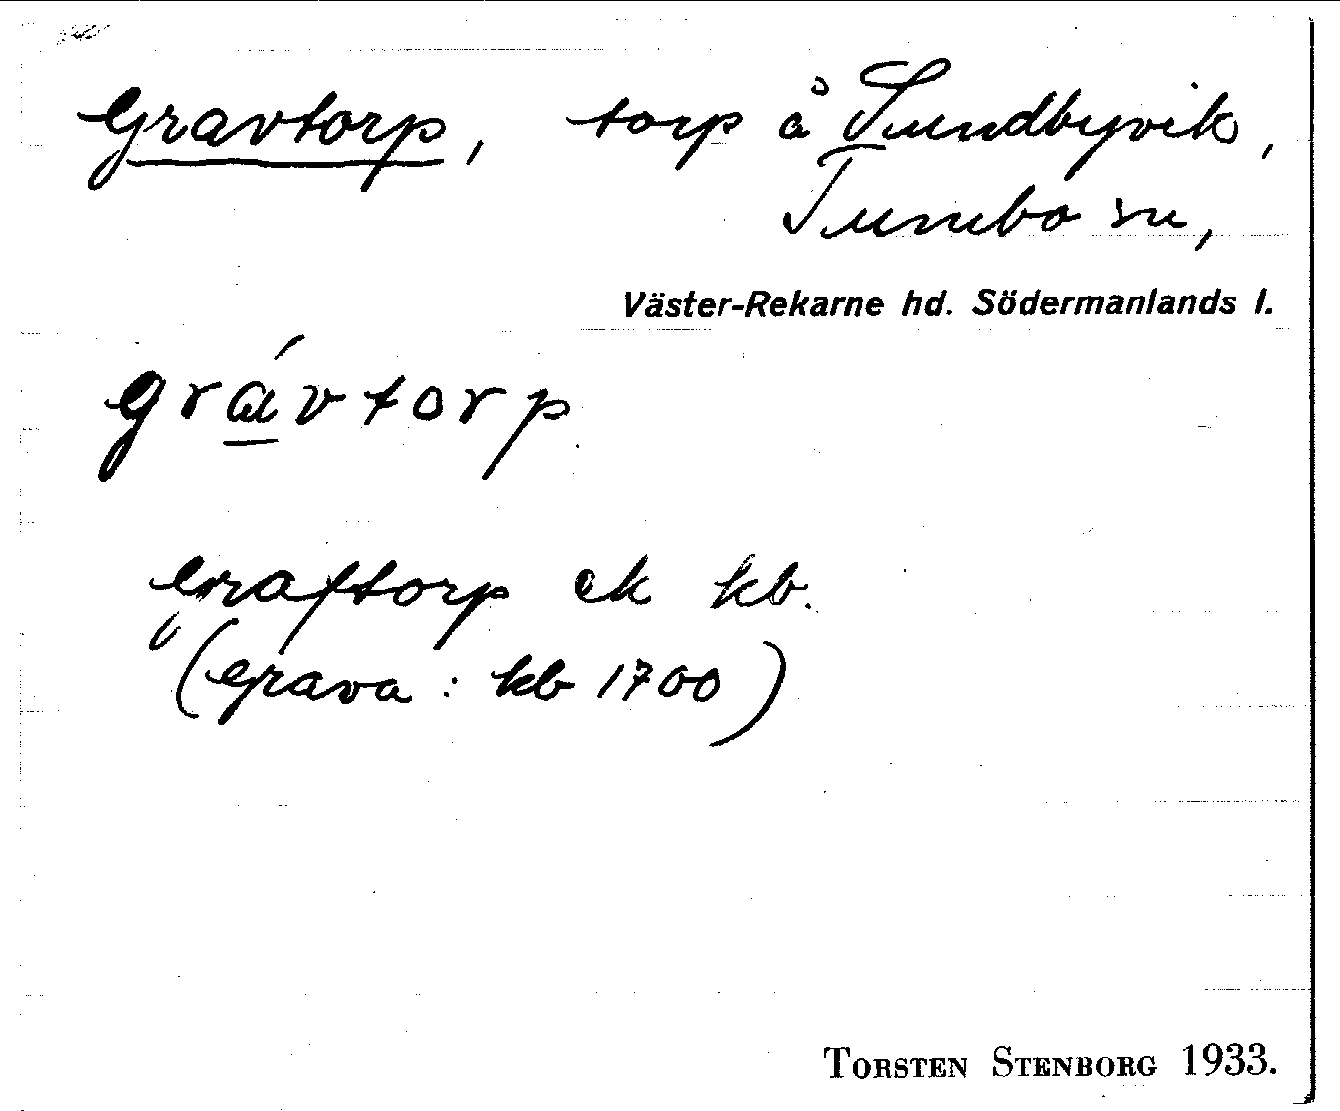 Gravtorp, torp å Sundbyvik,
Tumbo sn,
Väster-Rekarne hd. Södermanlands l.
grávtorp
Graftorp ek kb.
(Grava: kb 1700)
TORSTEN STENBORG 1933.